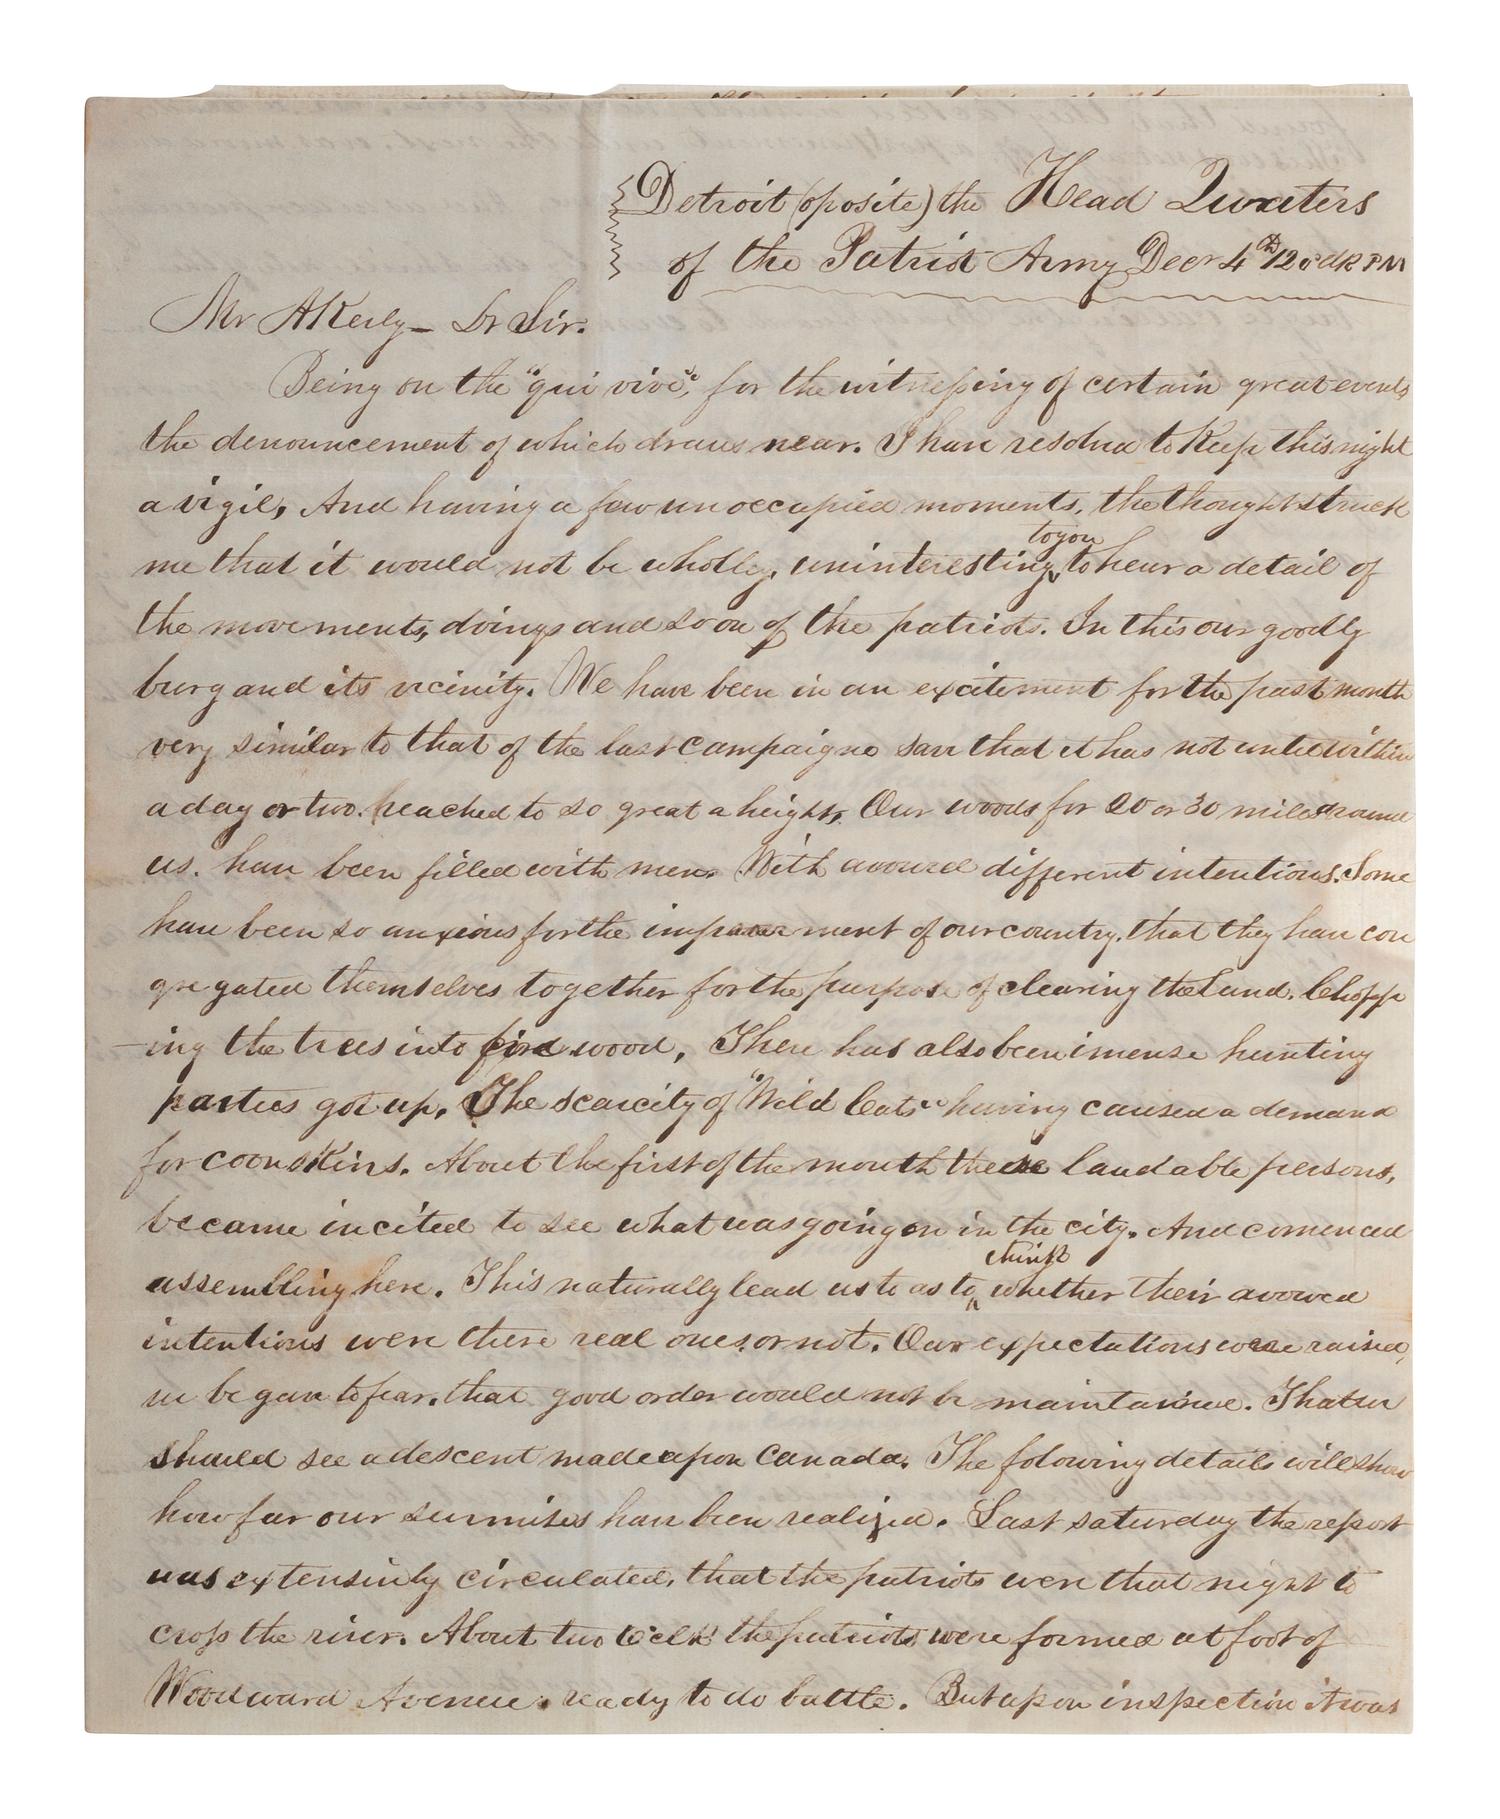 Detroit (oposite) the Head Quarters
of the Patriot Army Decr 4th 12 oclk PM
Mr A Kerly - Dr Sir.
Being on the "qui vive", for the witnessing of certain great events
the denouncement of which draws near. I have resolved to keep this night
a vigil, And having a few unoccupied moments, the thought struck
to you
me that it would not be wholly, uninteresting to hear a detail of
the movements, doings and so on of the patriots. In this our goodly
burg and its vicinity. We have been in an excitement for the past month
very similar to that of the last campaigne save that it has not until within
a day or two reached to so great a height. Our woods for 20 or 30 miles around
us. have been filled with men. With avowed different intentions. Some
have been so anxious for the improvement of our country, that they have con
gregated themselves together for the purpose of clearing the land. Chopp
-ing the trees into fire wood, There has also been imense hunting
parties got up. The scarcity of "Wild Cats" having caused a demand
for coon skins. About the first of the month these laudable persons,
became incited to see what was going on in the city. And comenced
think
assembling here. This naturally lead us to as to whether their avowed
intentions were there real ones, or not. Our expectations were raised,
we began to fear, that good order would not be maintained. That we
should see a descent made upon Canada. The folowing details will show
how far our surmises have been realized. Last saturday the report
was extensively circulated, that the patriots were that night to
cross the river. About two oclk the patriots were formed at foot of
Woodward Avenue. ready to do battle. But upon inspection it was